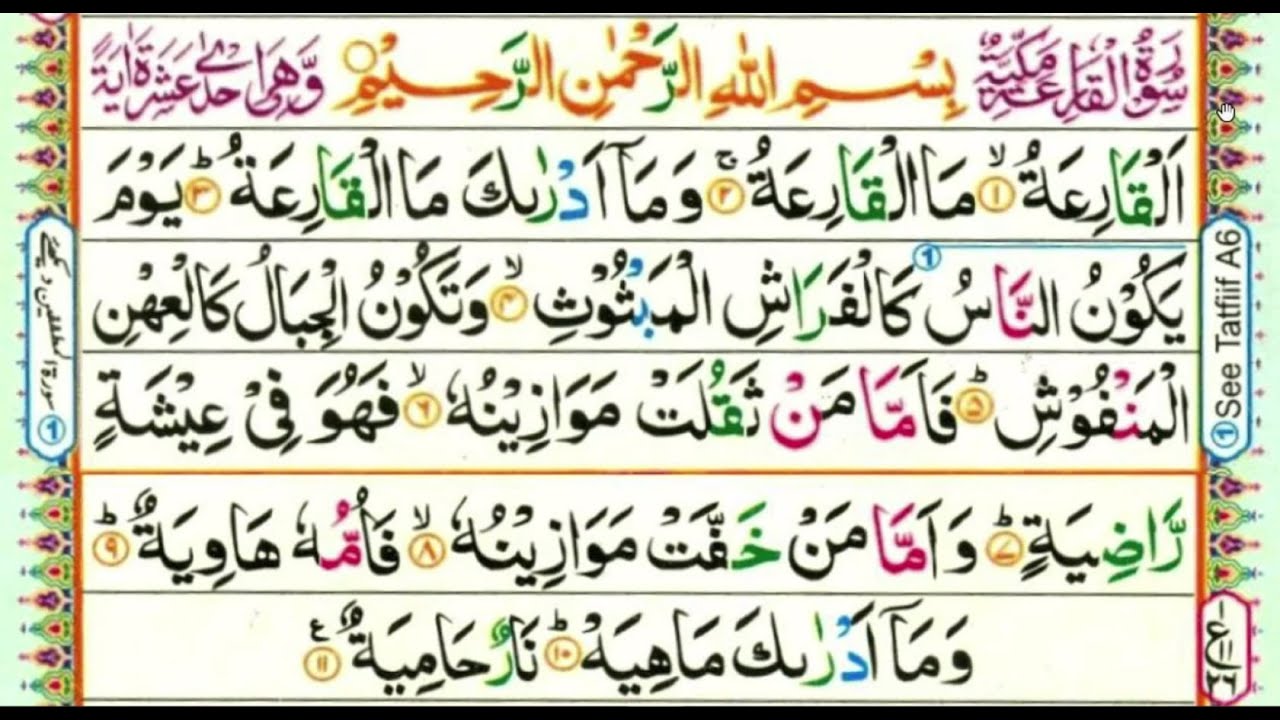 سُوْرَةُ الْقَارِعَةِ مَكِّيَّةٌ بِسْمِ اللهِ الرَّحْمٰنِ الرَّحِيْمِ وَّهِىَ اِحْدٰى عَشَرَةَ اٰيَةً
اَلْقَارِعَةُ ۙ﴿۱﴾ مَا الْقَارِعَةُ ۚ﴿۲﴾ وَمَاۤ اَدْرٰىكَ مَا الْقَارِعَةُ ؕ﴿۳﴾ يَوْمَ
يَكُوْنُ النَّاسُ كَالْفَرَاشِ الْمَبْثُوْثِ ۙ﴿۴﴾ وَتَكُوْنُ الْجِبَالُ كَالْعِهْنِ
الْمَنْفُوْشِ ؕ﴿۵﴾ فَاَمَّا مَنْ ثَقُلَتْ مَوَازِيْنُهٗ ۙ﴿۶﴾ فَهُوَ فِىْ عِيْشَةٍ
رَّاضِيَةٍ ؕ﴿۷﴾ وَاَمَّا مَنْ خَفَّتْ مَوَازِيْنُهٗ ۙ﴿۸﴾ فَاُمُّهٗ هَاوِيَةٌ ؕ﴿۹﴾
وَمَاۤ اَدْرٰىكَ مَاهِيَهْ ؕ﴿۱۰﴾ نَارٌ حَامِيَةٌ ﴿۱۱﴾ ع
① See Tatfiif A6
سورة المطففين دیکھئے ①